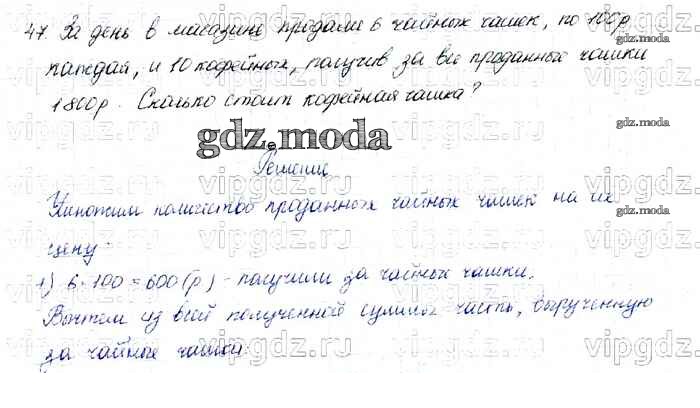 47. За день в магазине продали 6 чайных чашек, по 100р.
каждая, и 10 кофейных, получив за все проданные чашки
1800р. Сколько стоит кофейная чашка?
gdz.moda
Решение
Умножим количество проданных чайных чашек на их
цену.
1) 6·100=600(р) - получили за чайные чашки.
Вычтем из всей полученной суммы часть, вырученную
за чайные чашки.
vipgdz.ru